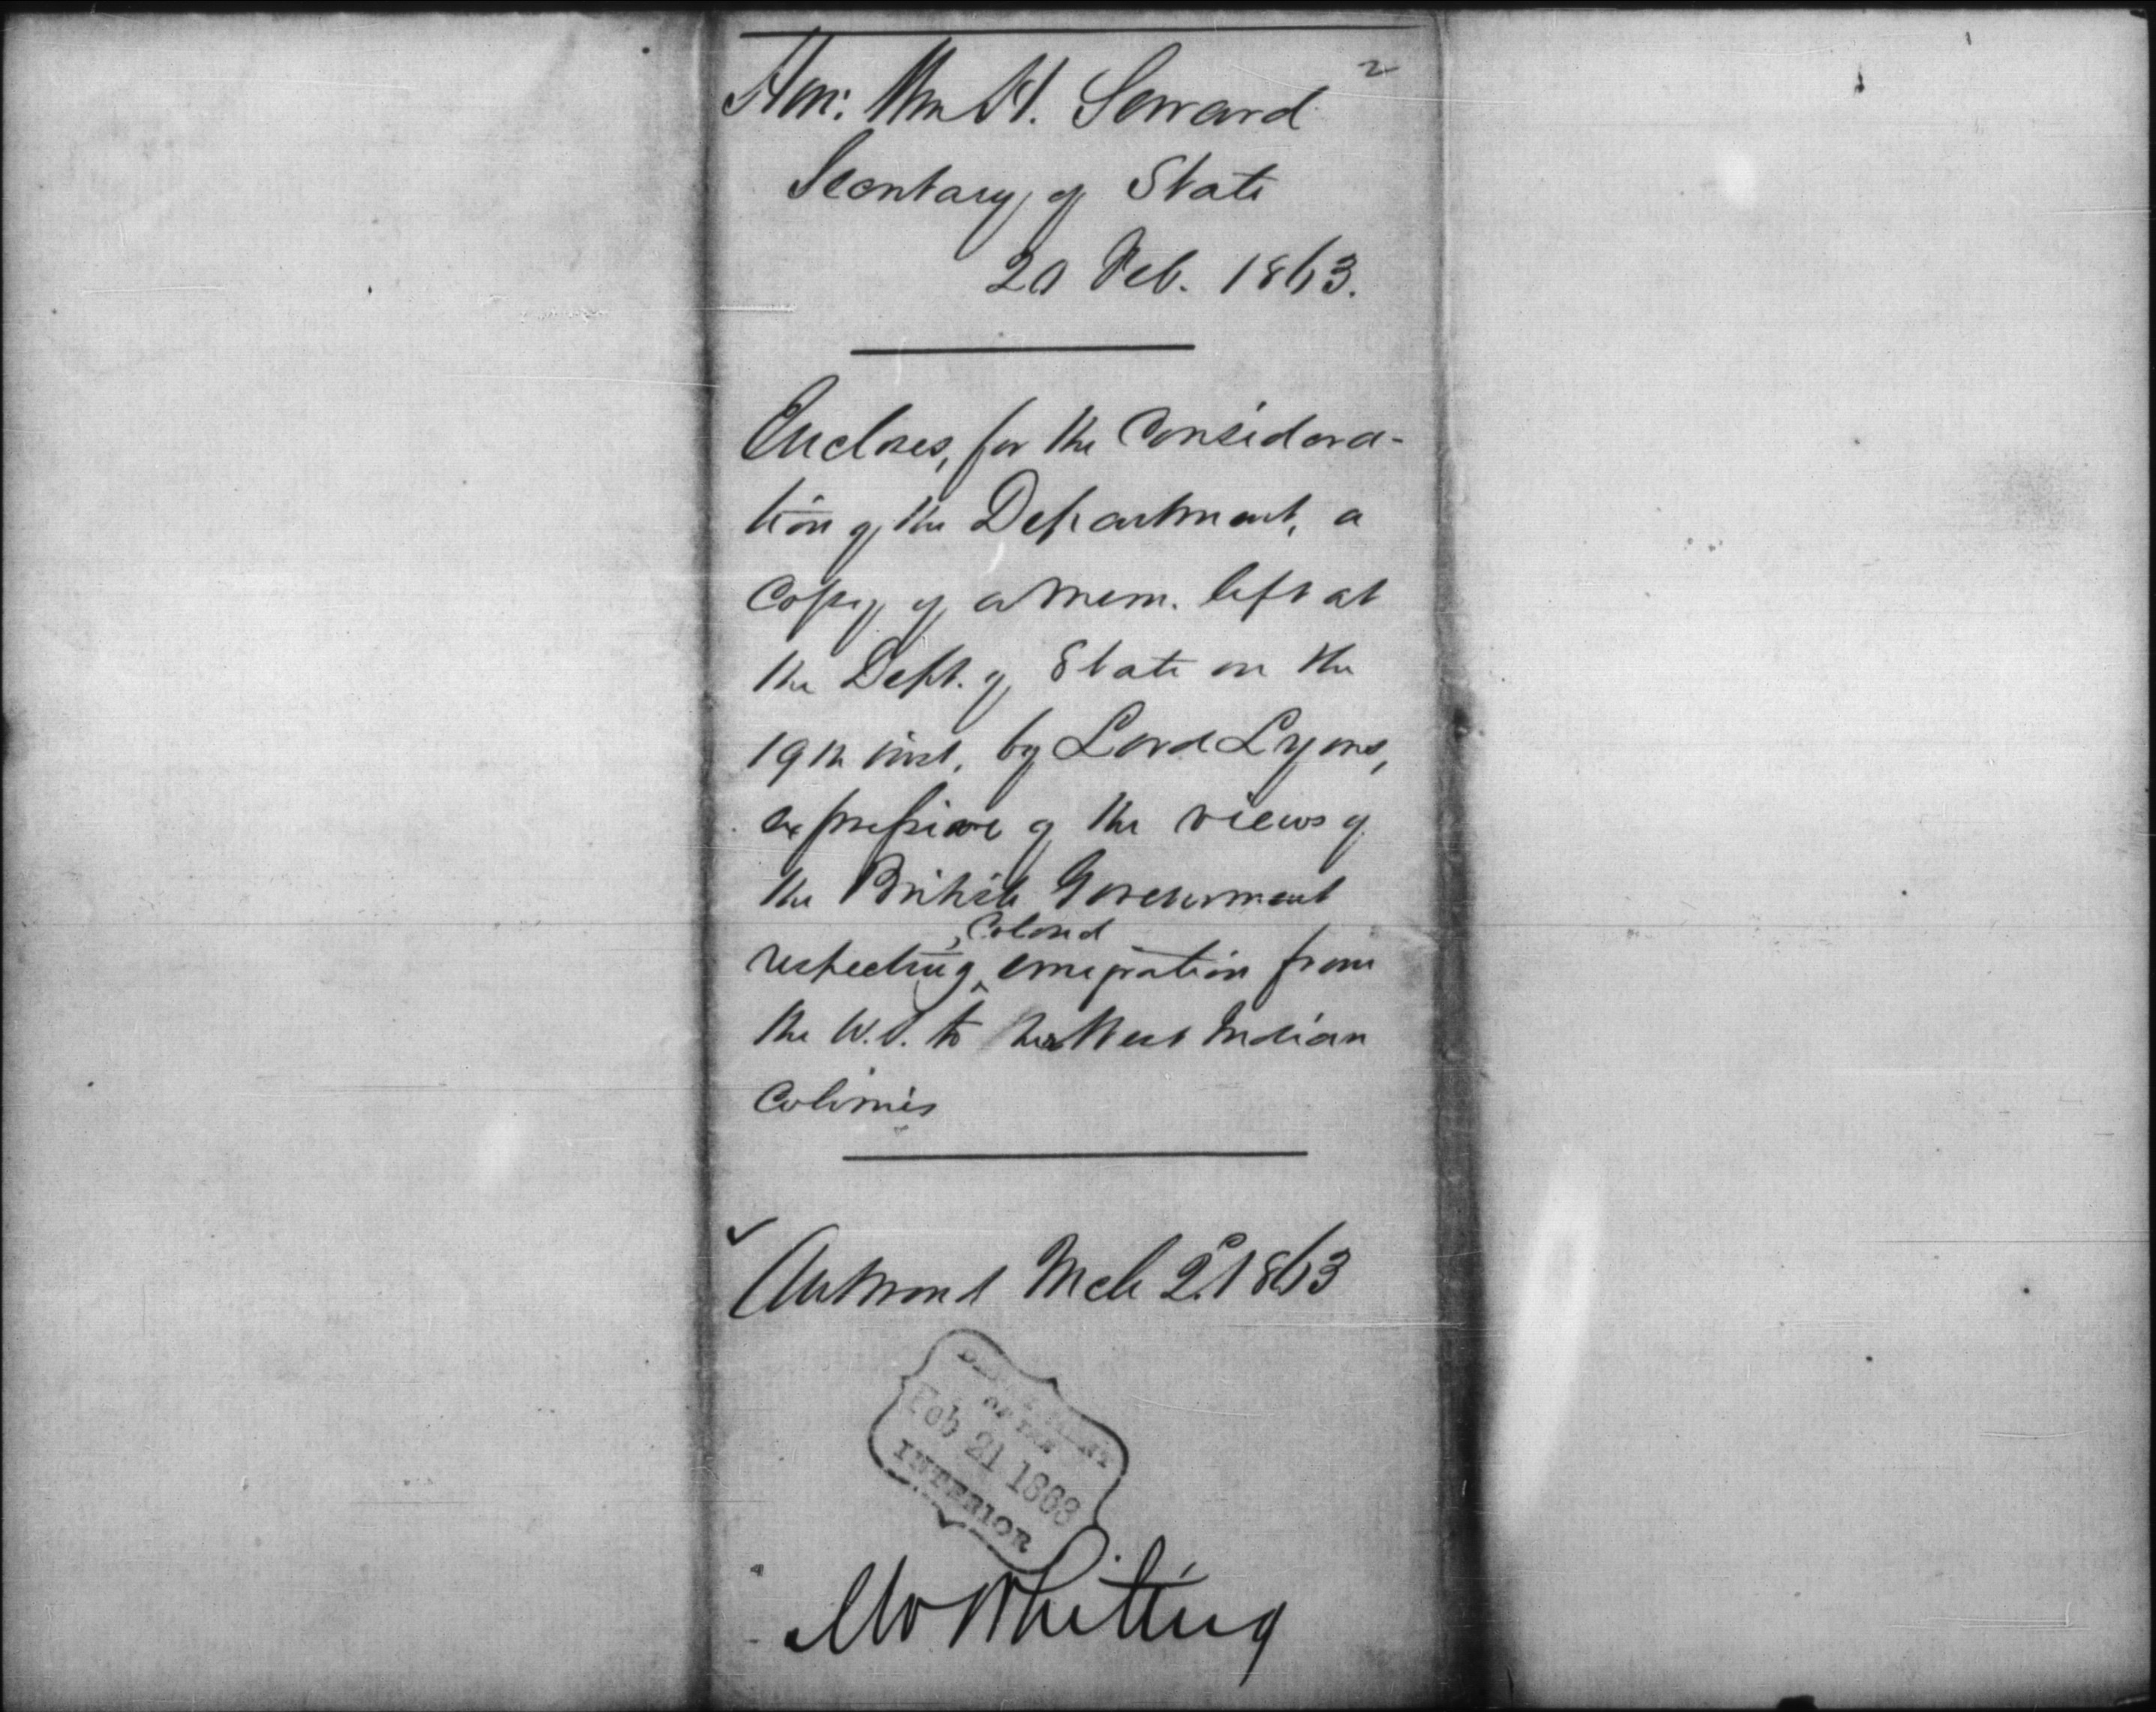 2
Hon: Wm H. Seward
Secretary of State
20 Feb. 1863.
Encloses, for the considera-
tion of the Department, a
copy of a mem. left at
the Dept. of State on the
19th inst. by Lord Lyons,
expressive of the views of
the British Government
Colored
respecting emigration from
the U.S. to the West Indian
Colonies
Answered Mch 2d 1863
DEPARTMENT
OF THE
Feb 21 1863
INTERIOR
Mr Whiting